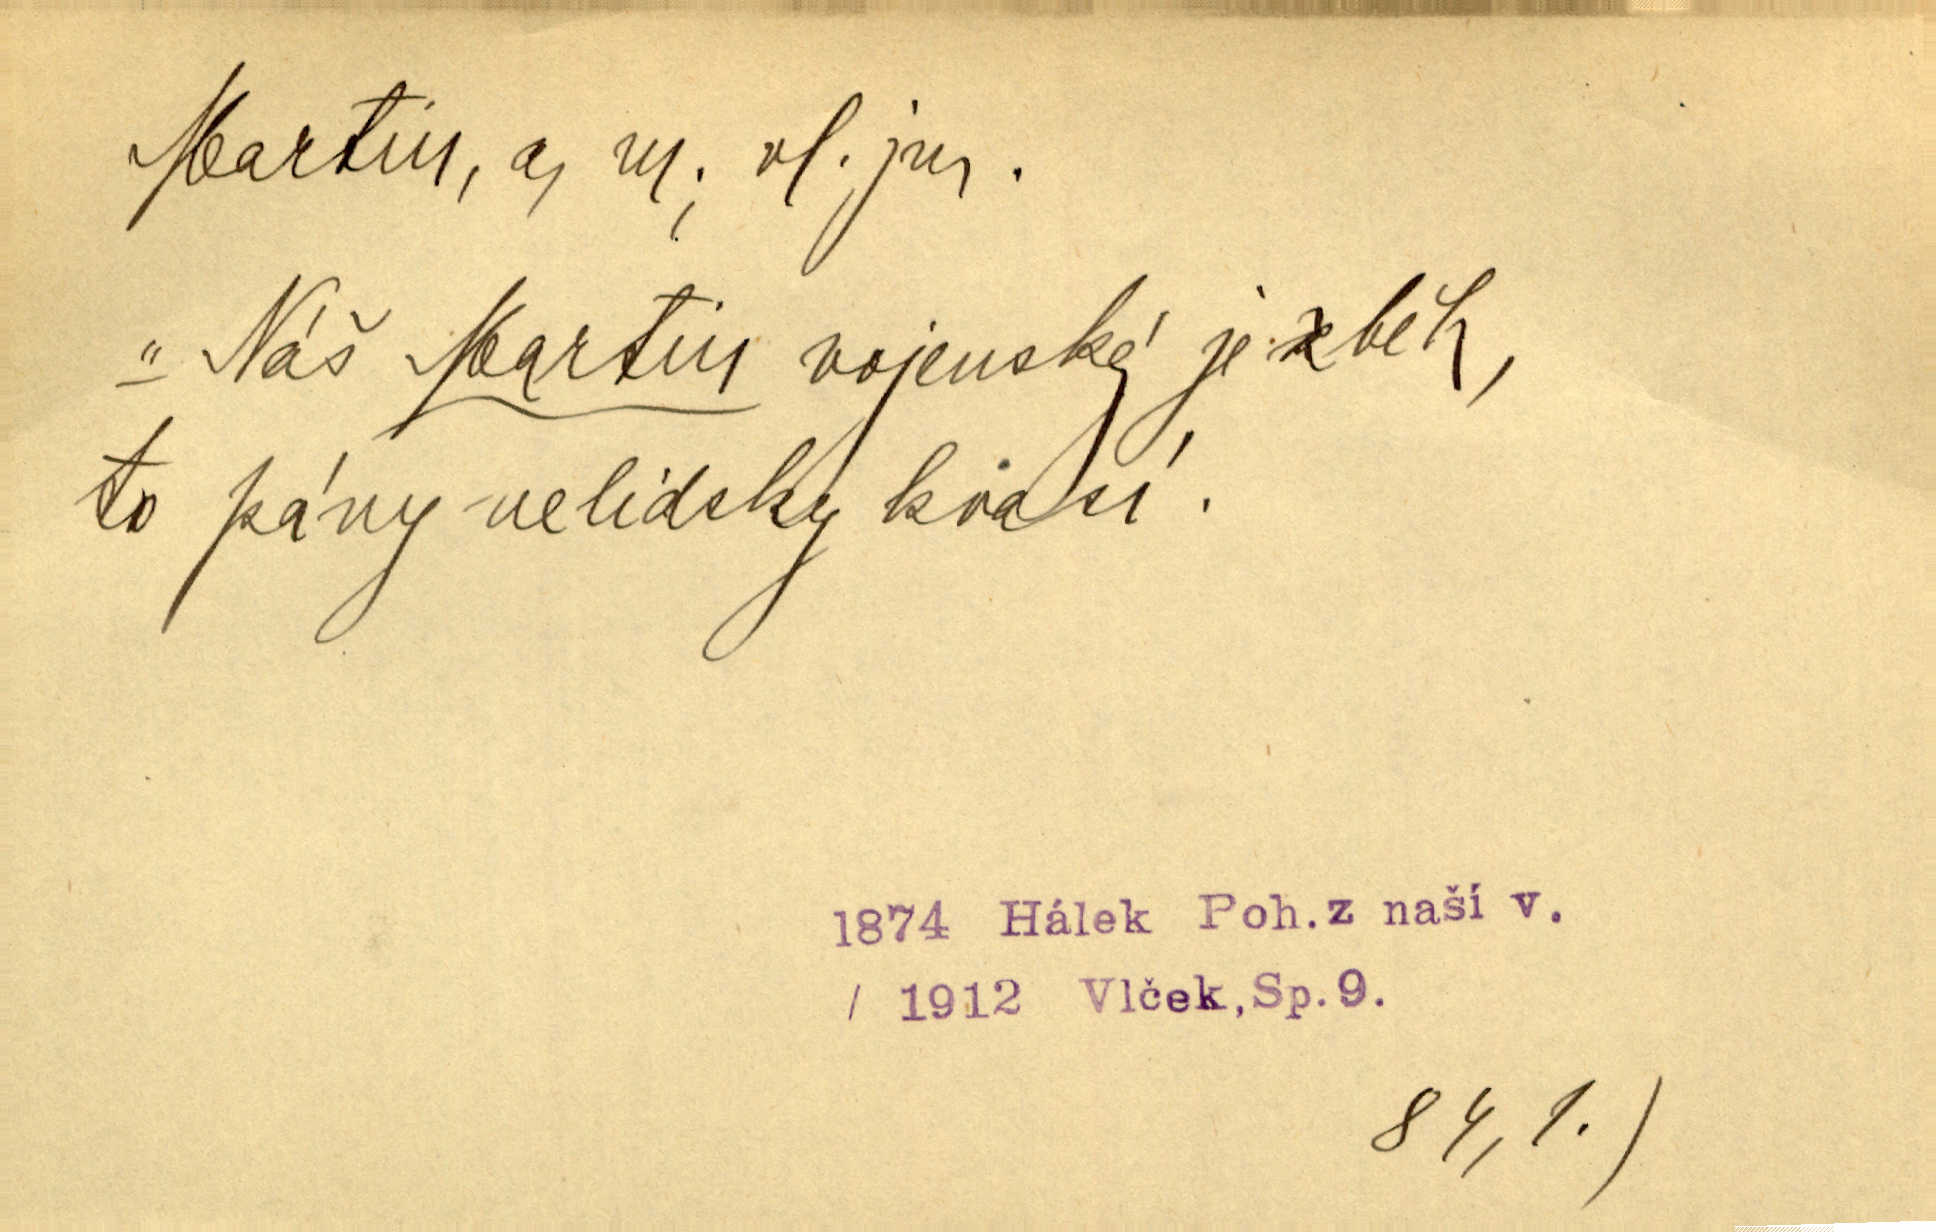 Martin, a, m; vl. jm.
"Náš Martin vojenský je zběh,
to pány nelidsky kvasí.
1874 Hálek Poh.z naší v.
/ 1912 Vlček,Sp.9.
84, 1.)